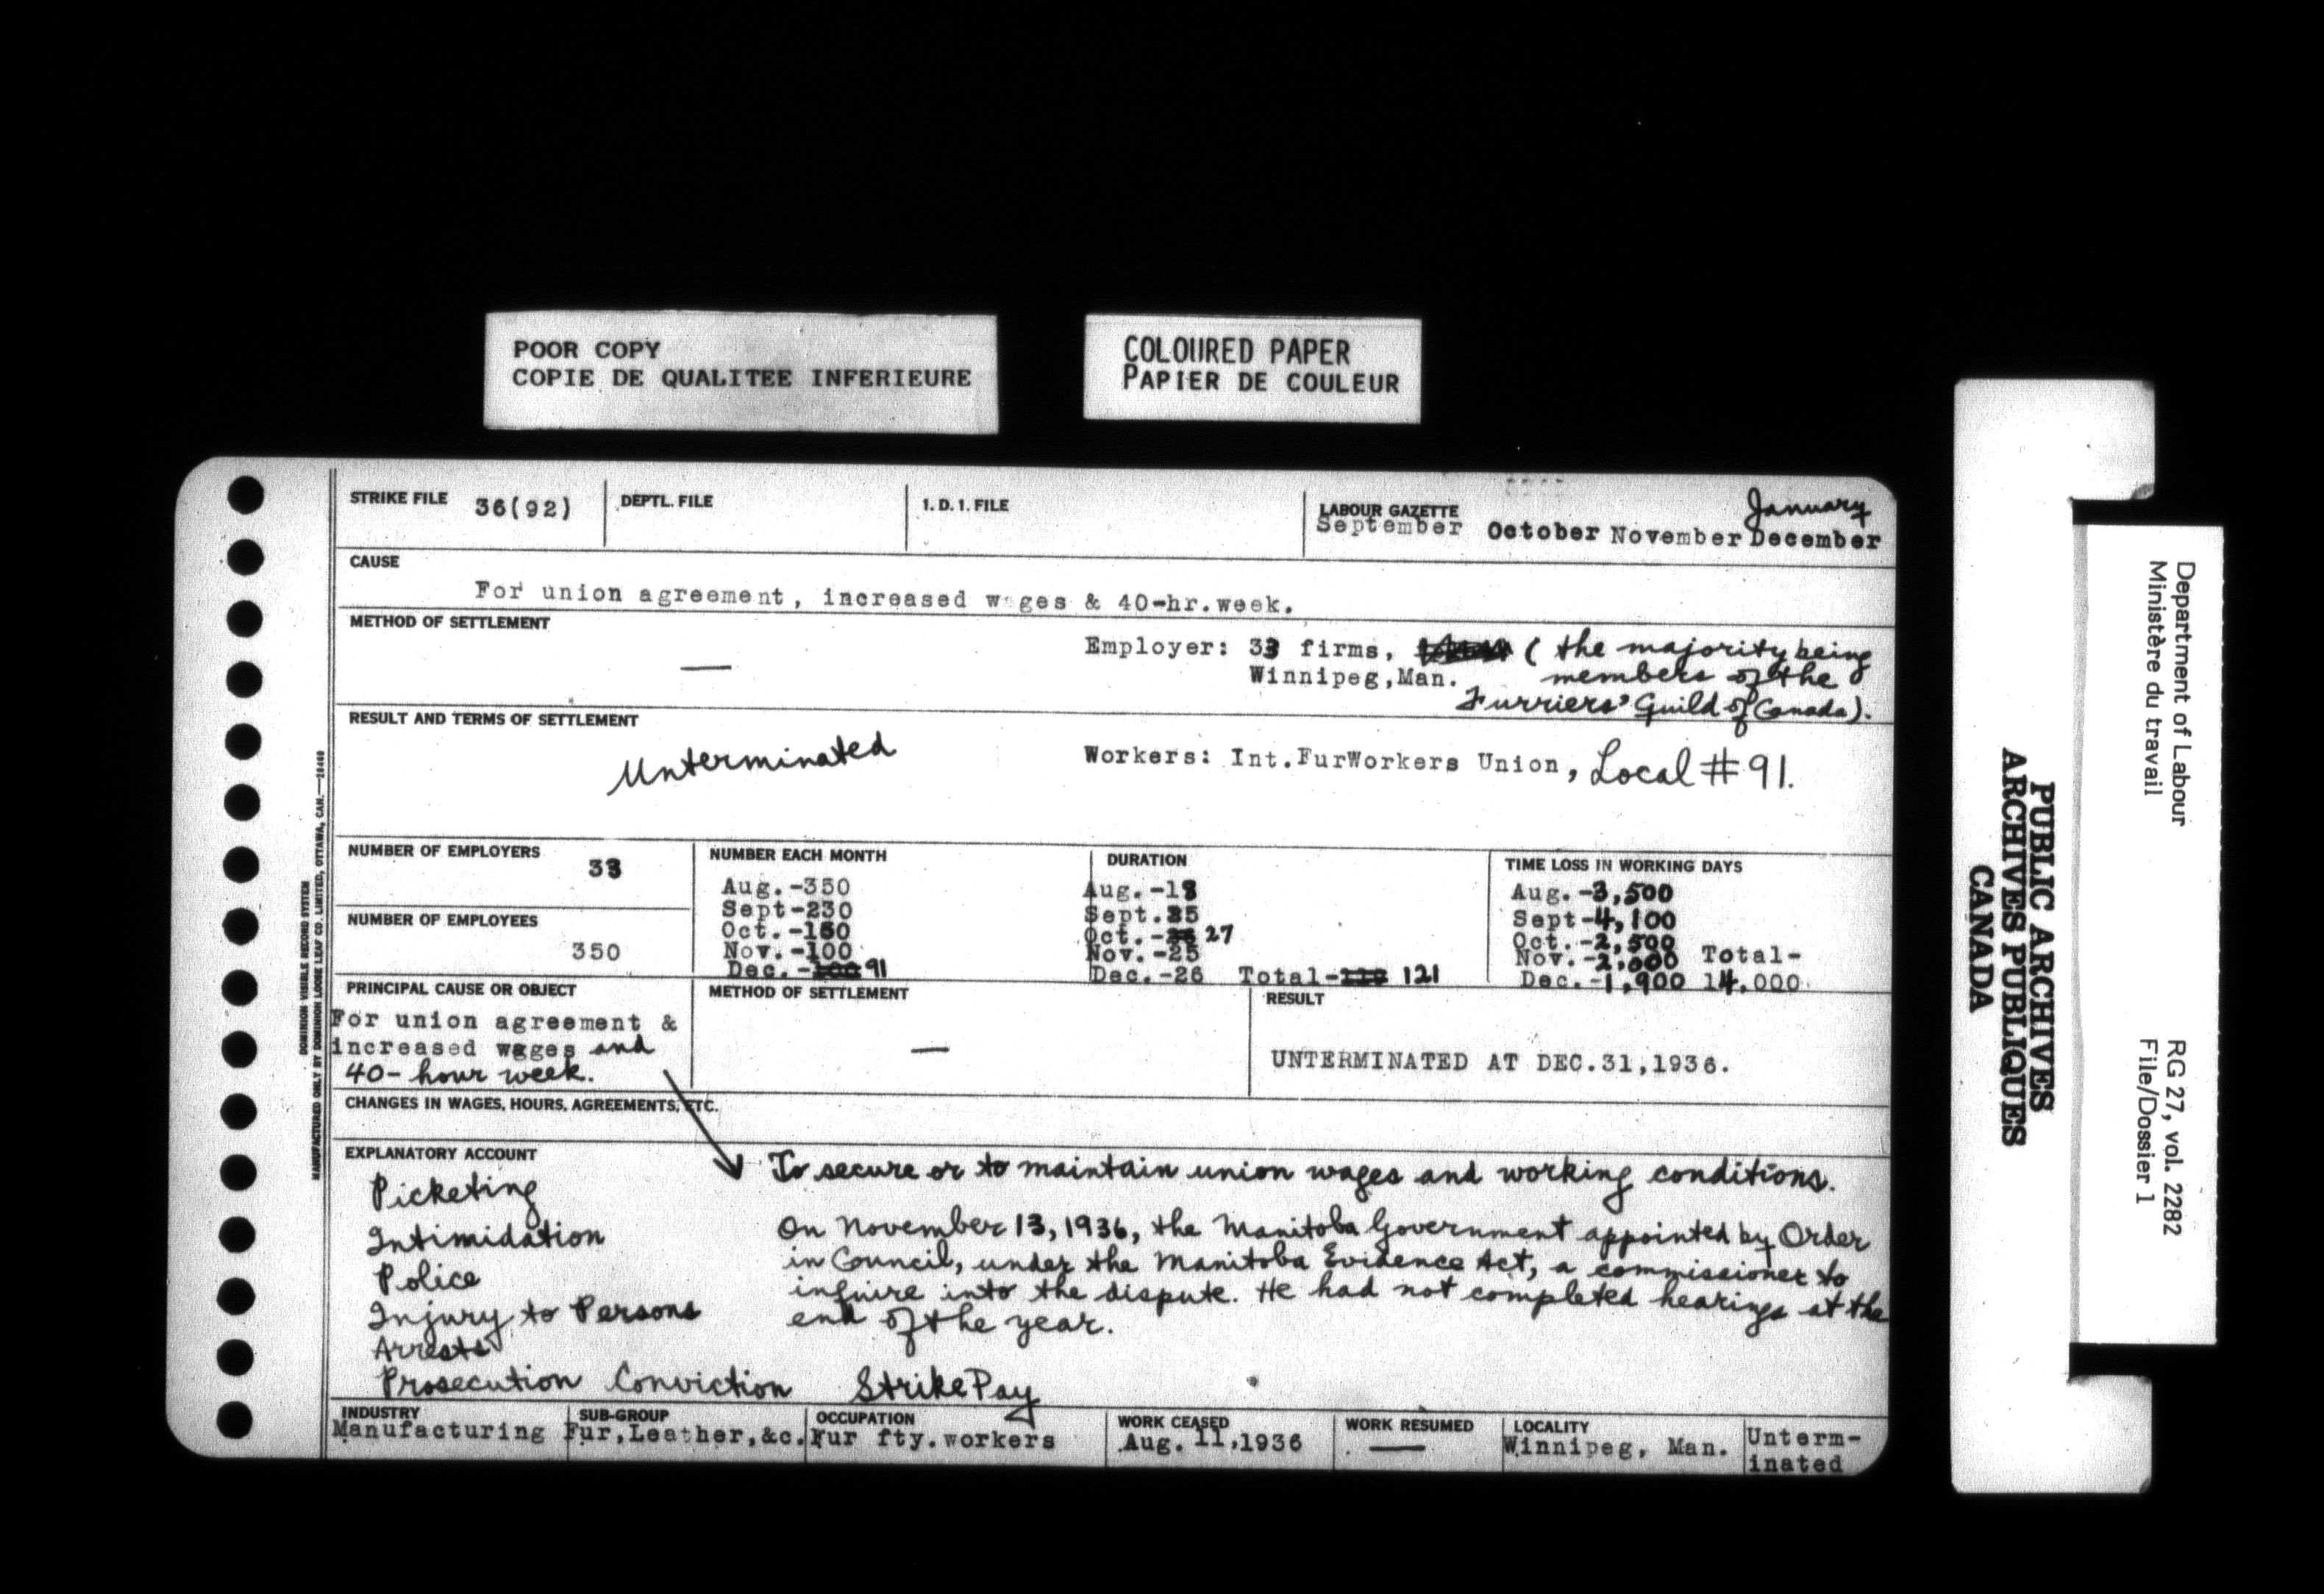 POOR COPY
COPIE DE QUALITEE INFERIEURE
COLOURED PAPER
PAPIER DE COULEUR
STRIKE FILE 36(92)
DEPTL. FILE
I. D. I. FILE
LABOUR GAZETTE January
September October November December
CAUSE
For union agreement, increased wages & 40-hr.week.
METHOD OF SETTLEMENT
—
Employer: 33 firms, ( the majority being
Winnipeg,Man. members of the
Furriers' Guild of Canada).
RESULT AND TERMS OF SETTLEMENT
Unterminated
Workers: Int.FurWorkers Union, Local # 91.
NUMBER OF EMPLOYERS
33
NUMBER OF EMPLOYEES
350
NUMBER EACH MONTH
Aug.-350
Sept-230
Oct.-150
Nov.-100
Dec.-100 91
DURATION
Aug.-18
Sept.25
Oct.- 27
Nov.-25
Dec.-26 Total- 121
TIME LOSS IN WORKING DAYS
Aug.-3,500
Sept-4,100
Oct.-2,500
Nov.-2,000 Total-
Dec.-1,900 14,000.
PRINCIPAL CAUSE OR OBJECT
For union agreement &
increased wages and
40-hour week.
METHOD OF SETTLEMENT
—
RESULT
UNTERMINATED AT DEC.31,1936.
CHANGES IN WAGES, HOURS, AGREEMENTS, ETC.
EXPLANATORY ACCOUNT
To secure or to maintain union wages and working conditions.
Picketing
Intimidation
Police
Injury to Persons
Arrests
Prosecution Conviction Strike Pay
On November 13, 1936, the Manitoba Government appointed by Order
in Council, under the Manitoba Evidence Act, a commissioner to
inquire into the dispute. He had not completed hearings at the
end of the year.
INDUSTRY
Manufacturing
SUB-GROUP
Fur,Leather,&c.
OCCUPATION
Fur fty.workers
WORK CEASED
Aug. 11,1936
WORK RESUMED
—
LOCALITY
Winnipeg, Man.
Unterm-
inated
DOMINION VISIBLE RECORD SYSTEM
MANUFACTURED ONLY BY DOMINION LOOSE LEAF CO. LIMITED, OTTAWA, CAN.
PUBLIC ARCHIVES
ARCHIVES PUBLIQUES
CANADA
Department of Labour
Ministère du travail
RG 27, vol. 2282
File/Dossier 1